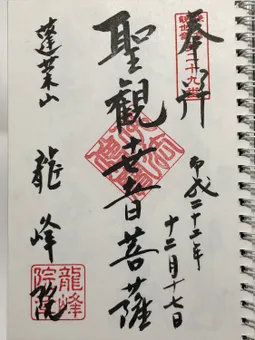 奉拝
平成二十二年
十二月十七日
聖観世音菩薩
蓬莱山 龍峰院
龍峰